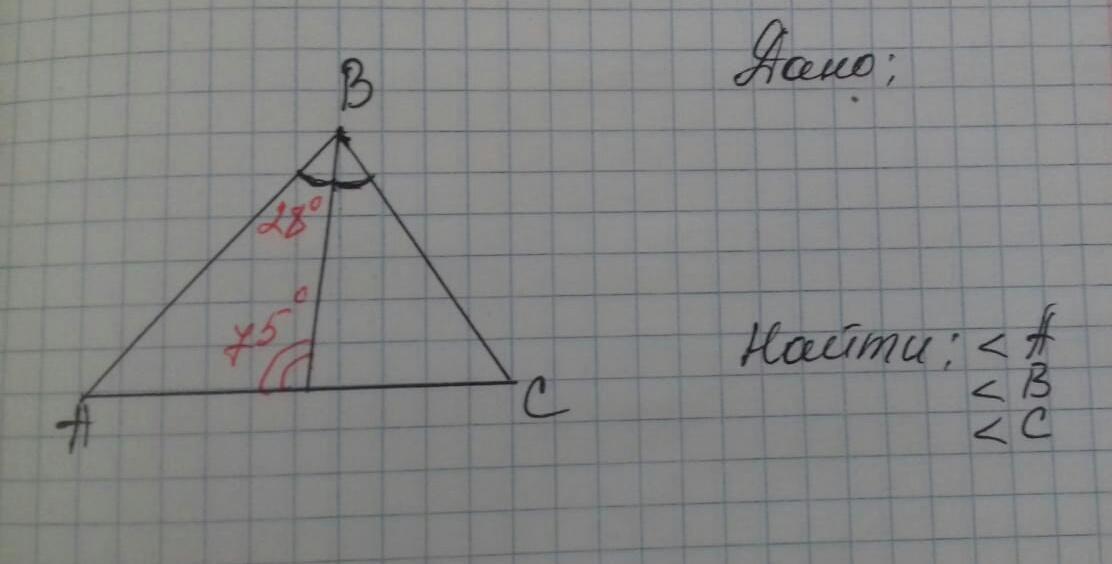 B
Дано:
28°
75°
Найти: < A
< B
< C
A
C